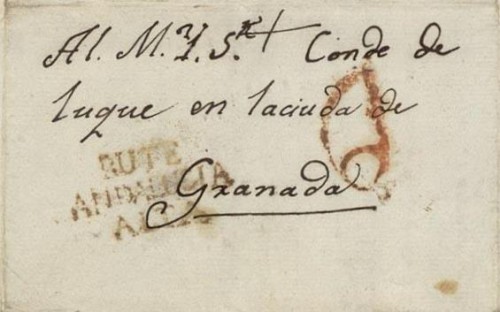 Al. M. Y. S.r Conde de
luque en laciuda de
Granada
RUTE
ANDALUCIA